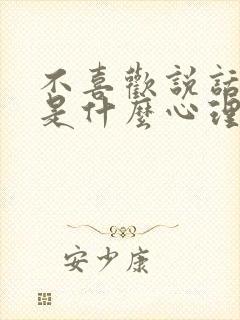 不喜歡説話
是什麼心理
安少康